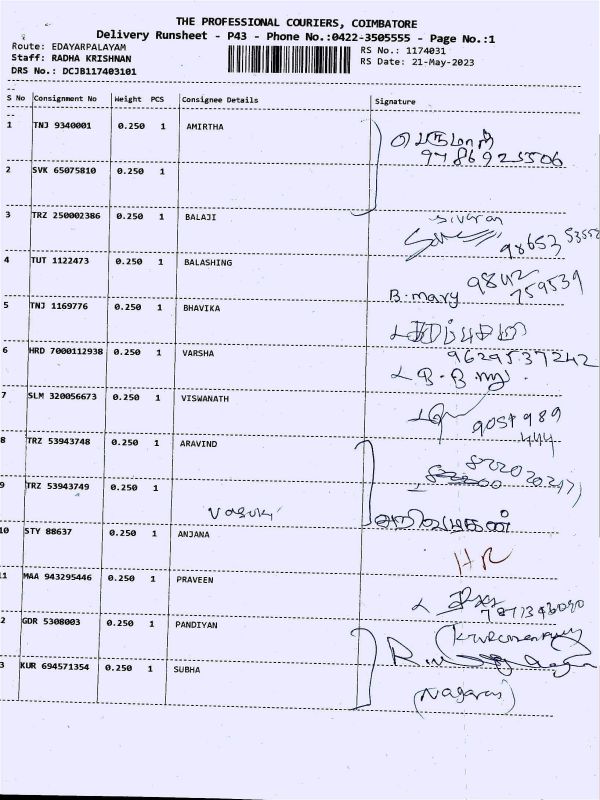 THE PROFESSIONAL COURIERS, COIMBATORE
Delivery Runsheet - P43 - Phone No.:0422-3505555 - Page No.:1
Route: EDAYARPALAYAM
RS No.: 1174031
Staff: RADHA KRISHNAN
RS Date: 21-May-2023
DRS No.: DCJB117403101
S No Consignment No Weight PCS Consignee Details Signature
1 TNJ 9340001 0.250 1 AMIRTHA
9786923506
2 SVK 65075810 0.250 1
3 TRZ 250002386 0.250 1 BALAJI
98653 53552
4 TUT 1122473 0.250 1 BALASHING
B. mary 9842 759539
5 TNJ 1169776 0.250 1 BHAVIKA
6 HRD 7000112938 0.250 1 VARSHA
9629537242
7 SLM 320056673 0.250 1 VISWANATH
989
444
8 TRZ 53943748 0.250 1 ARAVIND
9 TRZ 53943749 0.250 1
Vasuki
10 STY 88637 0.250 1 ANJANA
HR
11 MAA 943295446 0.250 1 PRAVEEN
2 GDR 5308003 0.250 1 PANDIYAN
3 KUR 694571354 0.250 1 SUBHA
(Nagaraj)